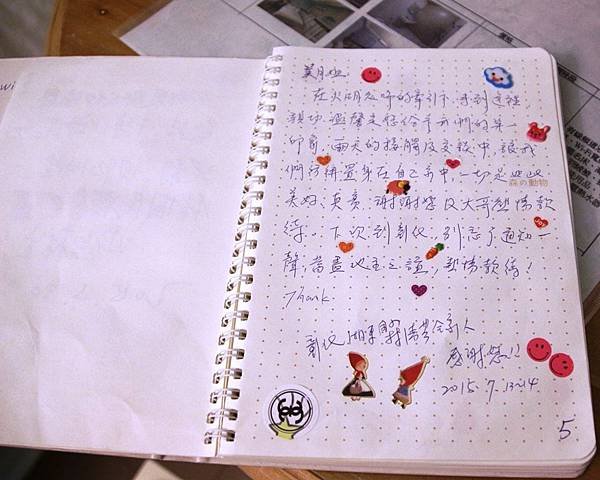 美月姐
在火明老師的牽引下,來到這裡
親切溫馨是您給予我們的第一
印象,兩天的接觸及交談中,讓我
們彷彿置身在自己家中,一切是如此
美好、真實,謝謝您及大哥熱情款
待。下次到新化,別忘了通知一
聲,當盡地主之誼,熱情款待!
Thank
新化
感謝您!!
2015.7.13~14
森の動物
5